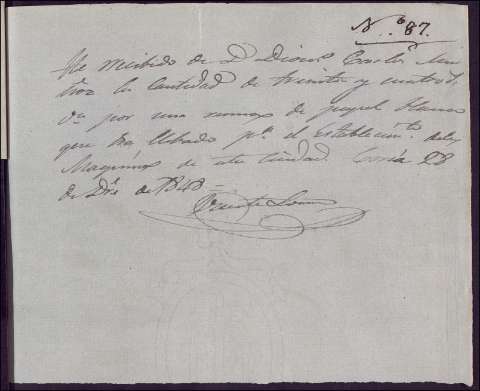 N.º 87.
He recibido de D. Dion.º Carlos Mu
ñoz la Cantidad de treinta y cuatro r.
v.n por una resma de papel blanco
que ha llebado p.ª el establecim.to de las
Maquinas de esta Ciudad. Coria 28
de Dre. de 1848 =
Vicente